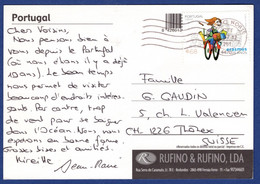 Portugal
Chers Voisins,
Nous pensons bien à
vous depuis le Portugal
(où nous étions il y a déjà
10 ans). Le beau temps
nous permet de visiter
beaucoup d'endroits intéres-
sants. Par contre, trop
de vent pour se baigner
dans l'Océan. Nous vous
espérons en bonne forme.
Grosses bises et amitiés
Mireille
Jean-Marie
Famille
G. GAUDIN
5, ch. L. Valencien
CH. 1226 Thônex
SUISSE
RUFINO & RUFINO, LDA